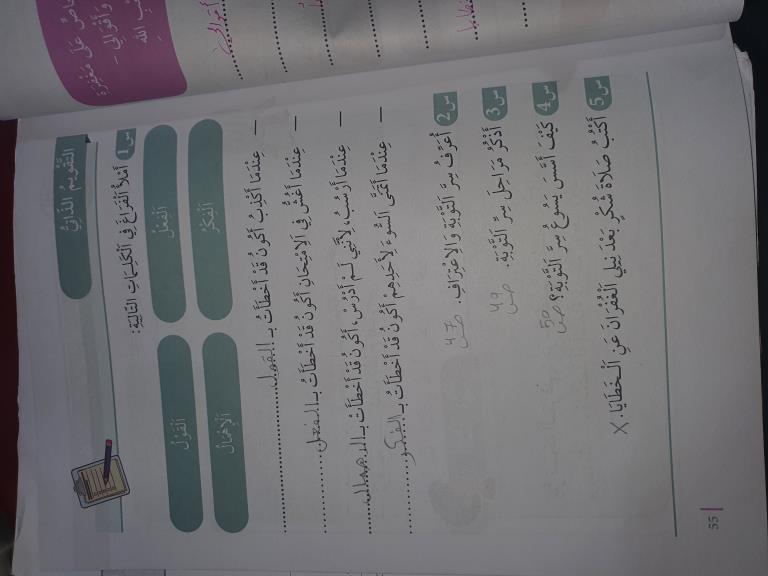 خَاصٌّ عَلَى مَغْفِرَةِ
وَأَقْوَالِي -
اللهِ
التَّقْوِيمُ الذَّاتِيُّ
س1 أَمْلَأُ الْفَرَاغَ فِي الْكَلِمَاتِ التَّالِيَةِ:
اَلْفِعْلُ اَلْقَوْلُ
اَلْفِكْرُ اَلْإِهْمَالُ
– عِنْدَمَا أَكْذِبُ أَكُونُ قَدْ أَخْطَأْتُ بِـ القول
– عِنْدَمَا أَغُشُّ فِي الِامْتِحَانِ أَكُونُ قَدْ أَخْطَأْتُ بِـ الفعل
– عِنْدَمَا أَرْسُبُ لِأَنَّنِي لَمْ أَدْرُسْ، أَكُونُ قَدْ أَخْطَأْتُ بِـ الاهمال
– عِنْدَمَا أَتَمَنَّى السُّوءَ لِأَحَدِهِمْ أَكُونُ قَدْ أَخْطَأْتُ بِـ الفكر
س2 أُعَرِّفُ سِرَّ التَّوْبَةِ وَالِاعْتِرَافِ. ص ٤٧
س3 أَذْكُرُ مَرَاحِلَ سِرِّ التَّوْبَةِ. ص ٤٩
س4 كَيْفَ أَسَّسَ يَسُوعُ سِرَّ التَّوْبَةِ؟ ص 50
س5 أَكْتُبُ صَلَاةَ شُكْرٍ بَعْدَ نَيْلِي الْغُفْرَانَ عَنِ الْخَطَايَا. X
55